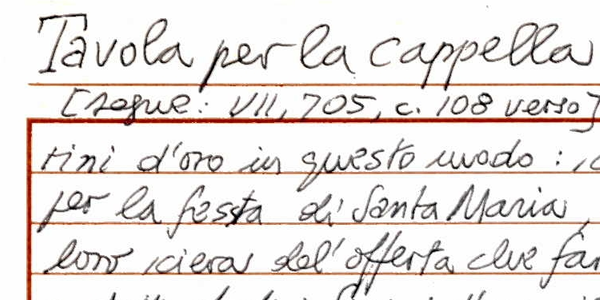 Tavola per la cappella
[segue: VII, 705, c. 108 verso]
rini d'oro in questo modo :
per la festa di Santa Maria,
loro ciera del'offerta che far